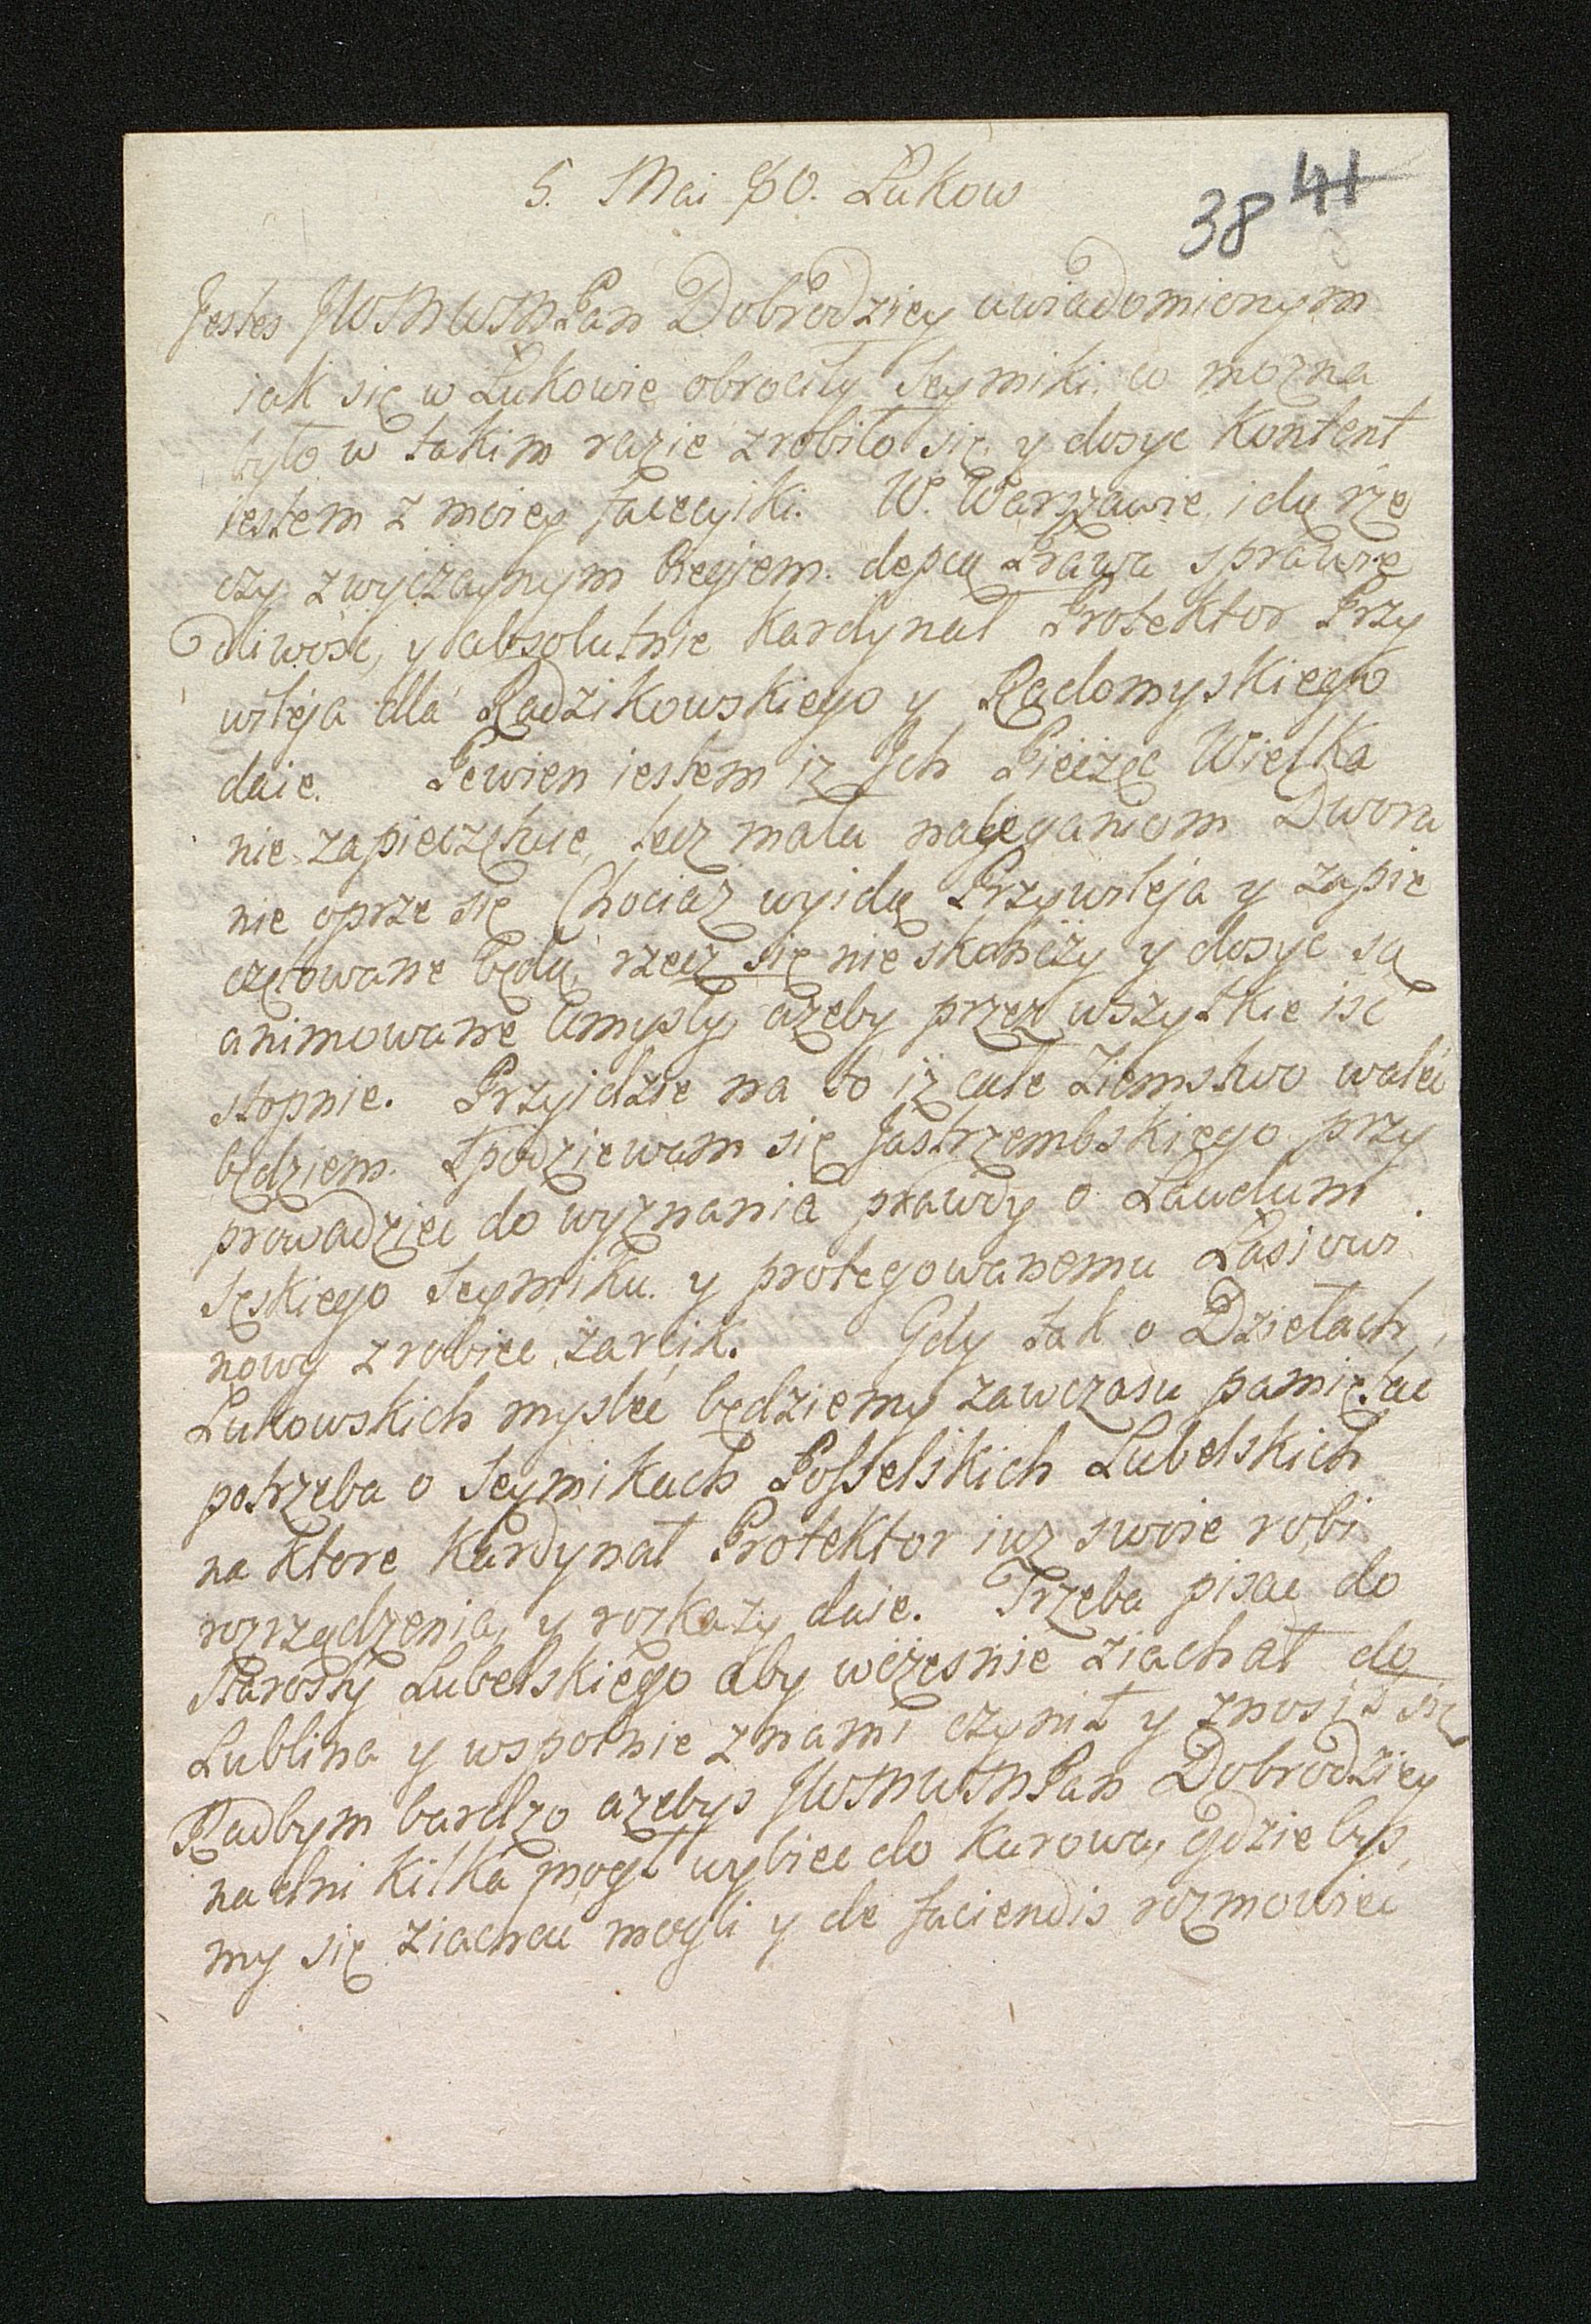 5. Mai 80. Łukow
38 41
Jestes JWMWMPan Dobrodziey uwiadomionym
iak się w Łukowie obrociły Seymiki, co mozna
było w takim razie zrobiło się, y dosyc kontent
iestem z moiey facecyiki. W Warszawie idą rze
czy zwyczaynym Biegiem. depcą Prawa sprawie
dliwosc, y absolutnie Kardynał Protektor Przy
wileja dla Radzikowskiego y Radomyskiego
daie. Pewien iestem iz Ich Pieczęc Wielka
nie zapieczętuie, lecz mała naleganiom Dwora
nie oprze się Chociaz wyidą Przywileja y zapie
czętowane będą, rzecz się nie skonczy y dosyc są
animowane Umysły, azeby przez wszytkie isc
stopnie. Przyidzie na to iz całe Ziemstwo walić
będziem. Spodziewam się Jastrzembskiego przy
prowadzieć do wyznania prawdy o Laudum
Seskiego Seymiku. y protegowanemu Łasiowi
nowy zrobiec zarcik. Gdy tak o Dziełach
Łukowskich mysleć będziemy zawczasu pamiętac
potrzeba o Seymikach Posselskich Lubelskich
na ktore Kardynał Protektor iuz swoie robi
rozrządzenia, y rozkazy daie. Trzeba pisac do
Starosty Lubelskiego aby wczesnie ziachał do
Lublina y wspolnie z nami czynił y znosił się
Radbym bardzo azebys JWMWMPan Dobrodziey
na dni kilka mogł wybiec do Kurowa, gdzie bys
my się ziachac mogli y de faciendis rozmowiec